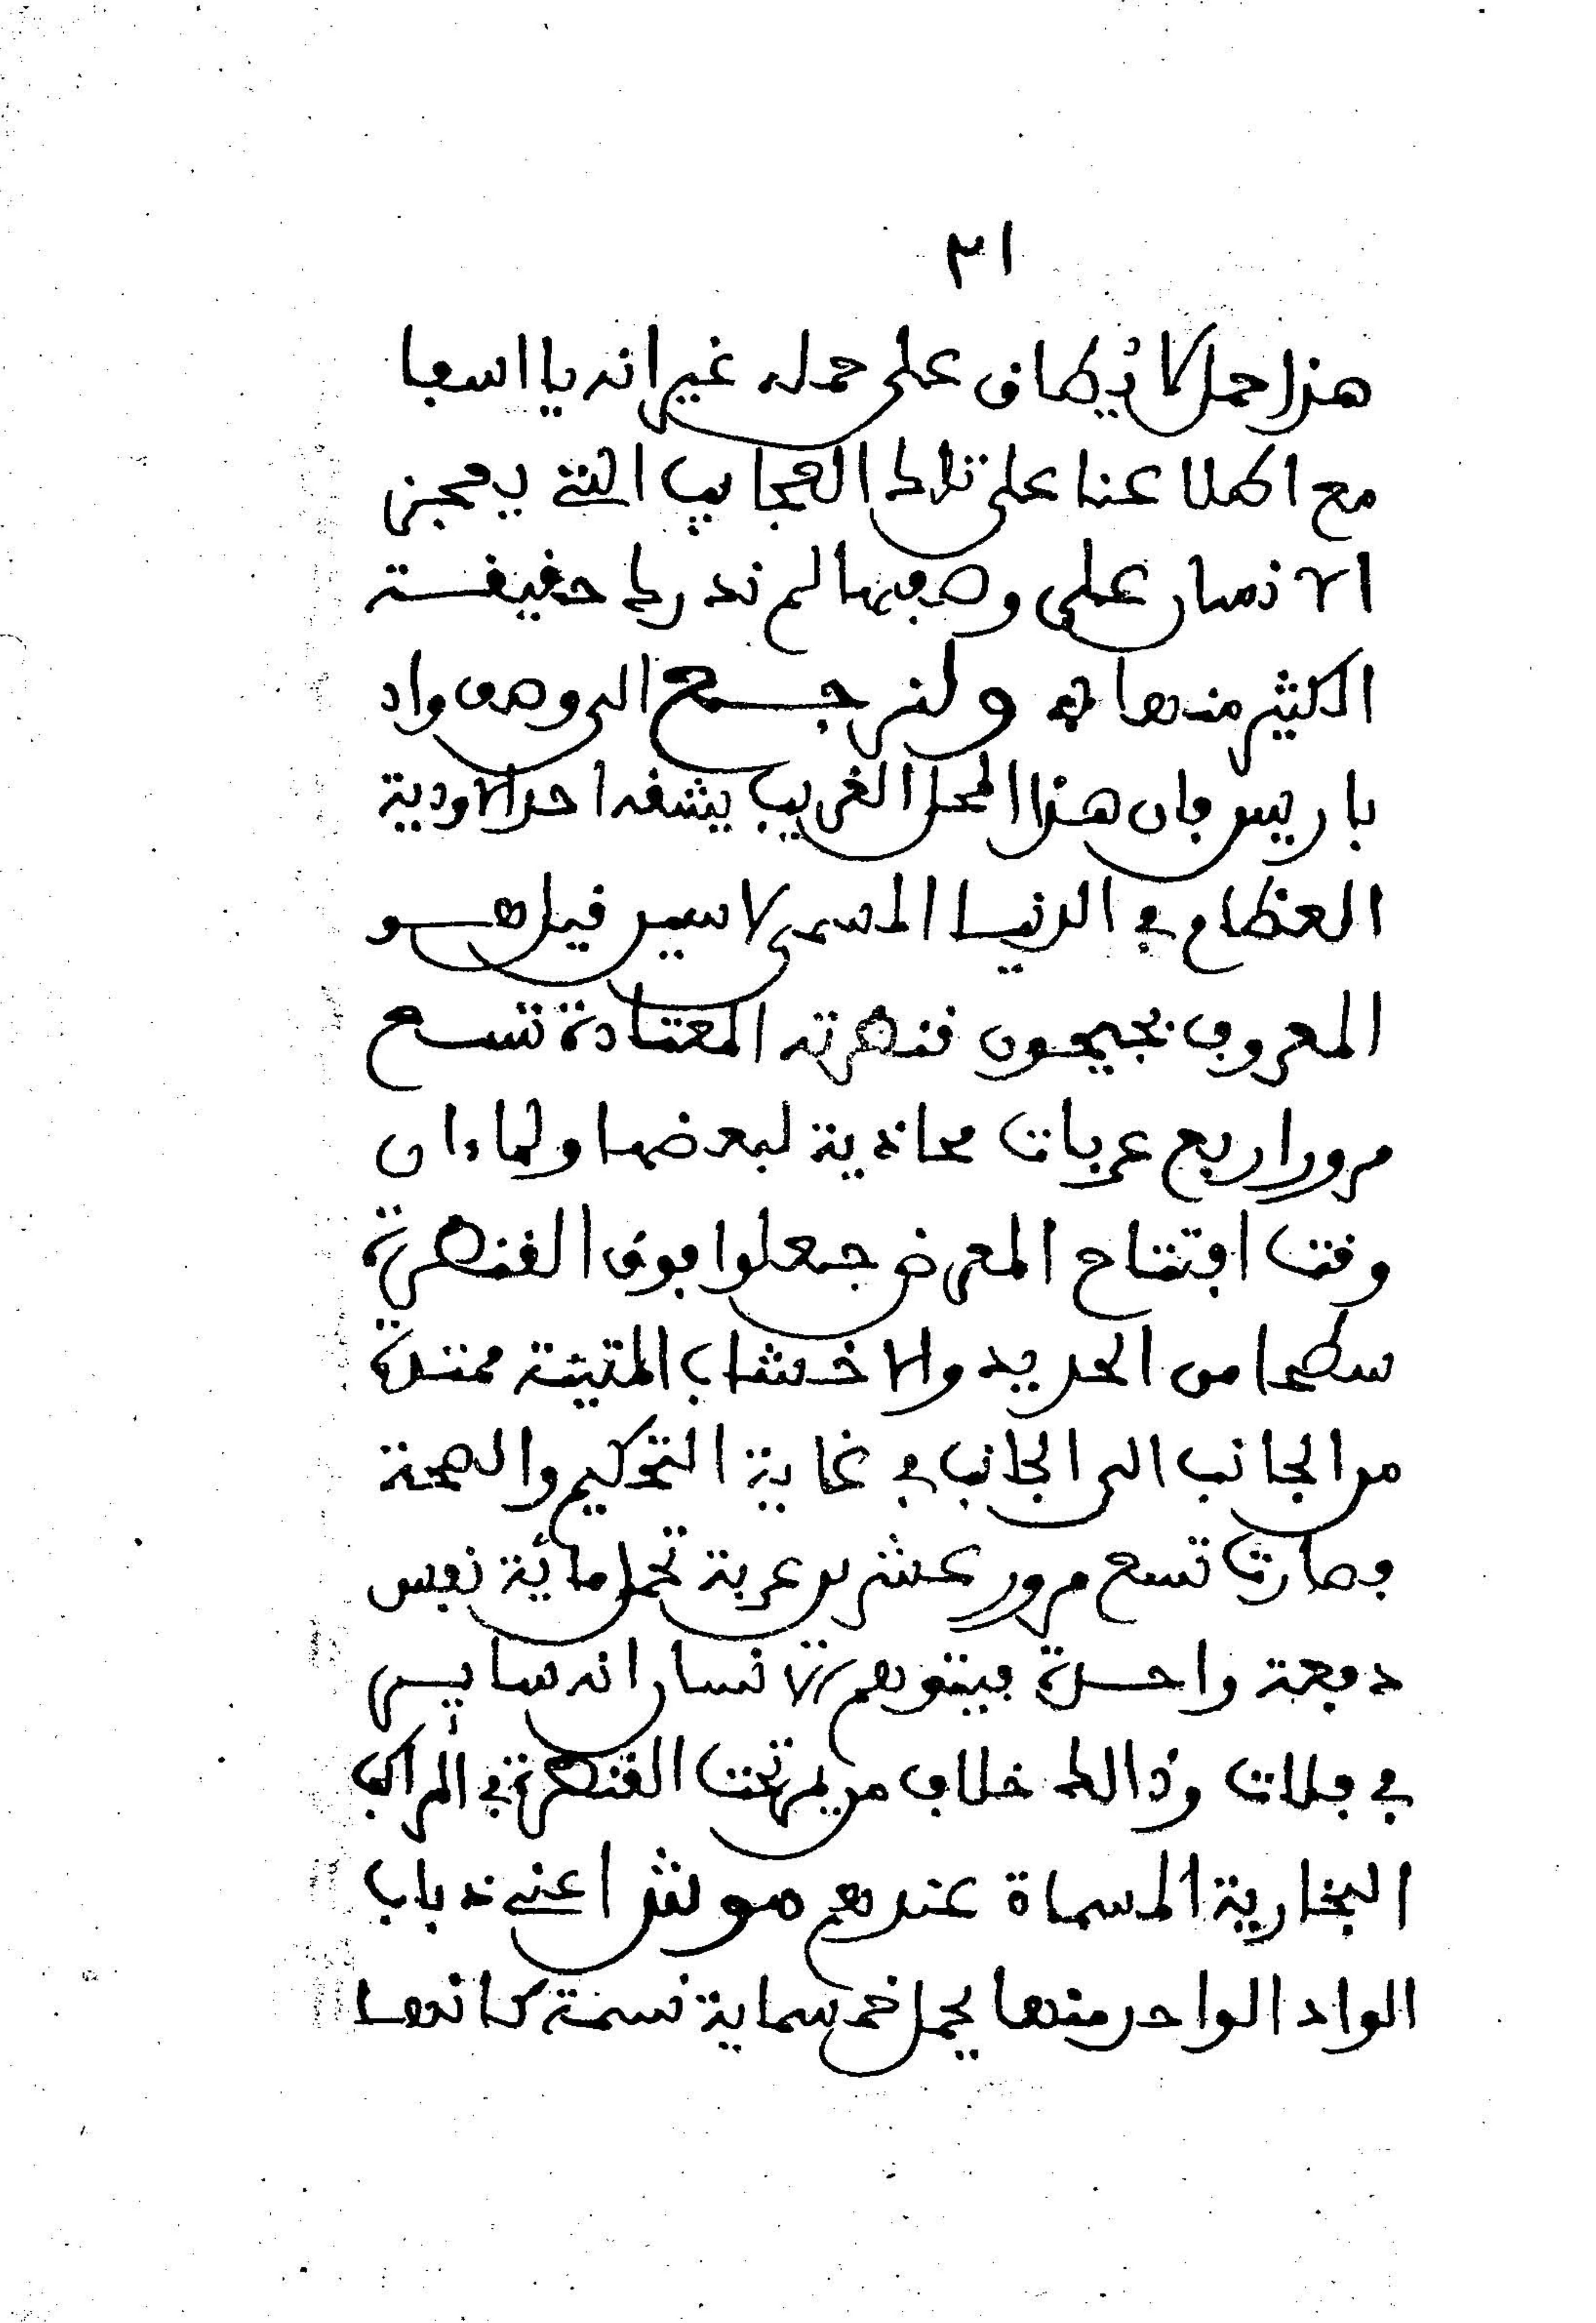 ٣١
هذا حمل لا يُطاق على حمله غير انه يا اسفا
مع اطلاعنا على تلك العجايب التي يعجز
الانسان على وصفها لم ندرك حقيقة
الكثير منها ولنرجع الى وصف واد
باريس فان هذا المحل الغريب يشقه احد الاودية
العظام في الدنيا المسمى لاسين فيل هو
المعروف بجيحون قنطرته المعتادة تسع
مرور اربع عربات محاذية لبعضها ولما ان
وقت افتتاح المعرض جعلوا فوق القنطرة
سطحا من الحديد والاخشاب المتينة ممتدة
من الجانب الى الجانب في غاية التحكيم والصحة
فصارت تسع مرور عشرين عربة تحمل مائة نفس
دفعة واحدة فيتوهم الانسان انه ساير
في فلات وذالك خلاف من يمر تحت القنطرة في المراكب
البخارية المسماة عندهم موش اعني ذباب
الواد الواحد منها يحمل خمسماية نسمة كانها